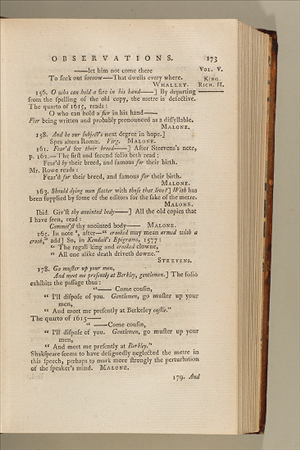 OBSERVATIONS. 173
——let him not come there VOL. V.
To ſeek out ſorrow——That dwells every where. KING
WHALLEY. RICH. II.
156. O who can hold a fire in his hand——] By departing
from the ſpelling of the old copy, the metre is defective.
The quarto of 1615, reads:
O who can hold a fier in his hand——
Fier being written and probably pronounced as a diſſyllable.
MALONE.
158. And be our ſubject's next degree in hope.]
Spes altera Romæ. Virg. MALONE.
161. Fear'd for their breed——] After Steevens's note,
p. 162.—The firſt and ſecond folio both read:
Fear'd by their breed, and famous for their birth.
Mr. Rowe reads:
Fear'd for their breed, and famous for their birth.
MALONE.
163. Should dying men flatter with thoſe that live?] With has
been ſupplied by ſome of the editors for the ſake of the metre.
MALONE.
Ibid. Giv'ſt thy anointed body——] All the old copies that
I have ſeen, read:
Commit'ſt thy anointed body—— MALONE.
165. In note, after—" crooked may mean armed with a
crook," add] So, in Kendall's Epigrams, 1577:
" The regall king and crooked clowne,
" All one alike death driveth downe."
STEEVENS.
178. Go muſter up your men,
And meet me preſently at Berkley, gentlemen.] The folio
exhibits the paſſage thus:
"—— Come couſin,
" I'll diſpoſe of you. Gentlemen, go muſter up your
men,
" And meet me preſently at Berkeley caſtle."
The quarto of 1615——
" —— Come couſin,
" I'll diſpoſe of you. Gentlemen, go muſter up your
men,
" And meet me preſently at Berkley."
Shakſpeare ſeems to have deſignedly neglected the metre in
this ſpeech, perhaps to mark more ſtrongly the perturbation
of the ſpeaker's mind. MALONE.
179. And